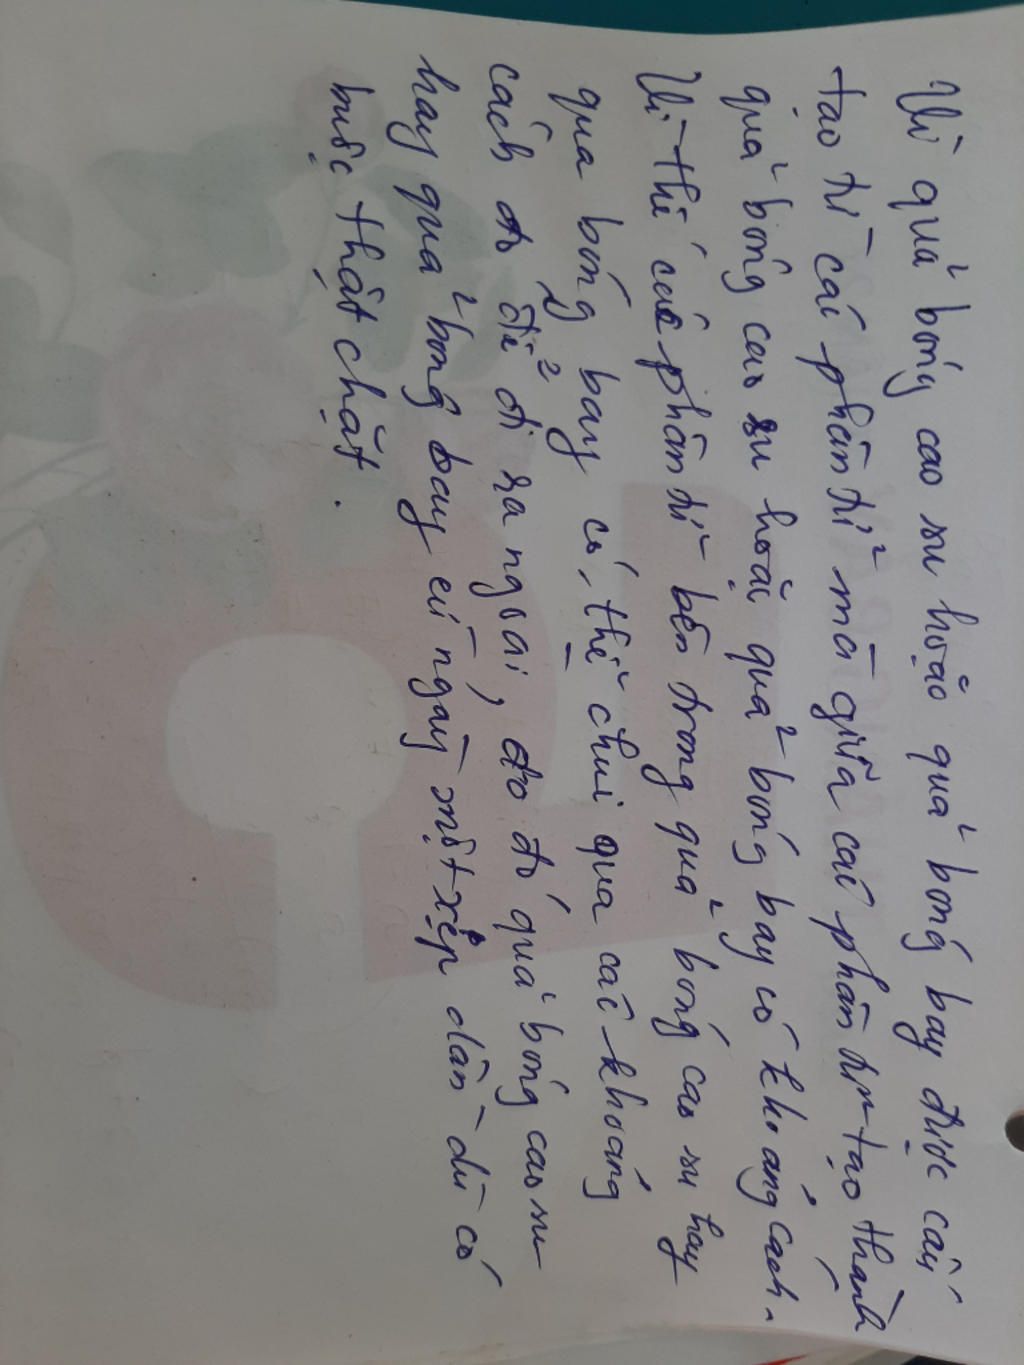 Vì quả bóng cao su hoặc quả bóng bay được cấu
tạo từ các phân tử mà giữa các phân tử tạo thành
quả bóng cao su hoặc quả bóng bay có khoảng cách.
Vì thế các phân tử bên trong quả bóng cao su hay
quả bóng bay có thể chui qua các khoảng
cách đó để đi ra ngoài, do đó quả bóng cao su
hay quả bóng bay cứ ngày một xẹp dần dù có
buộc thật chặt.